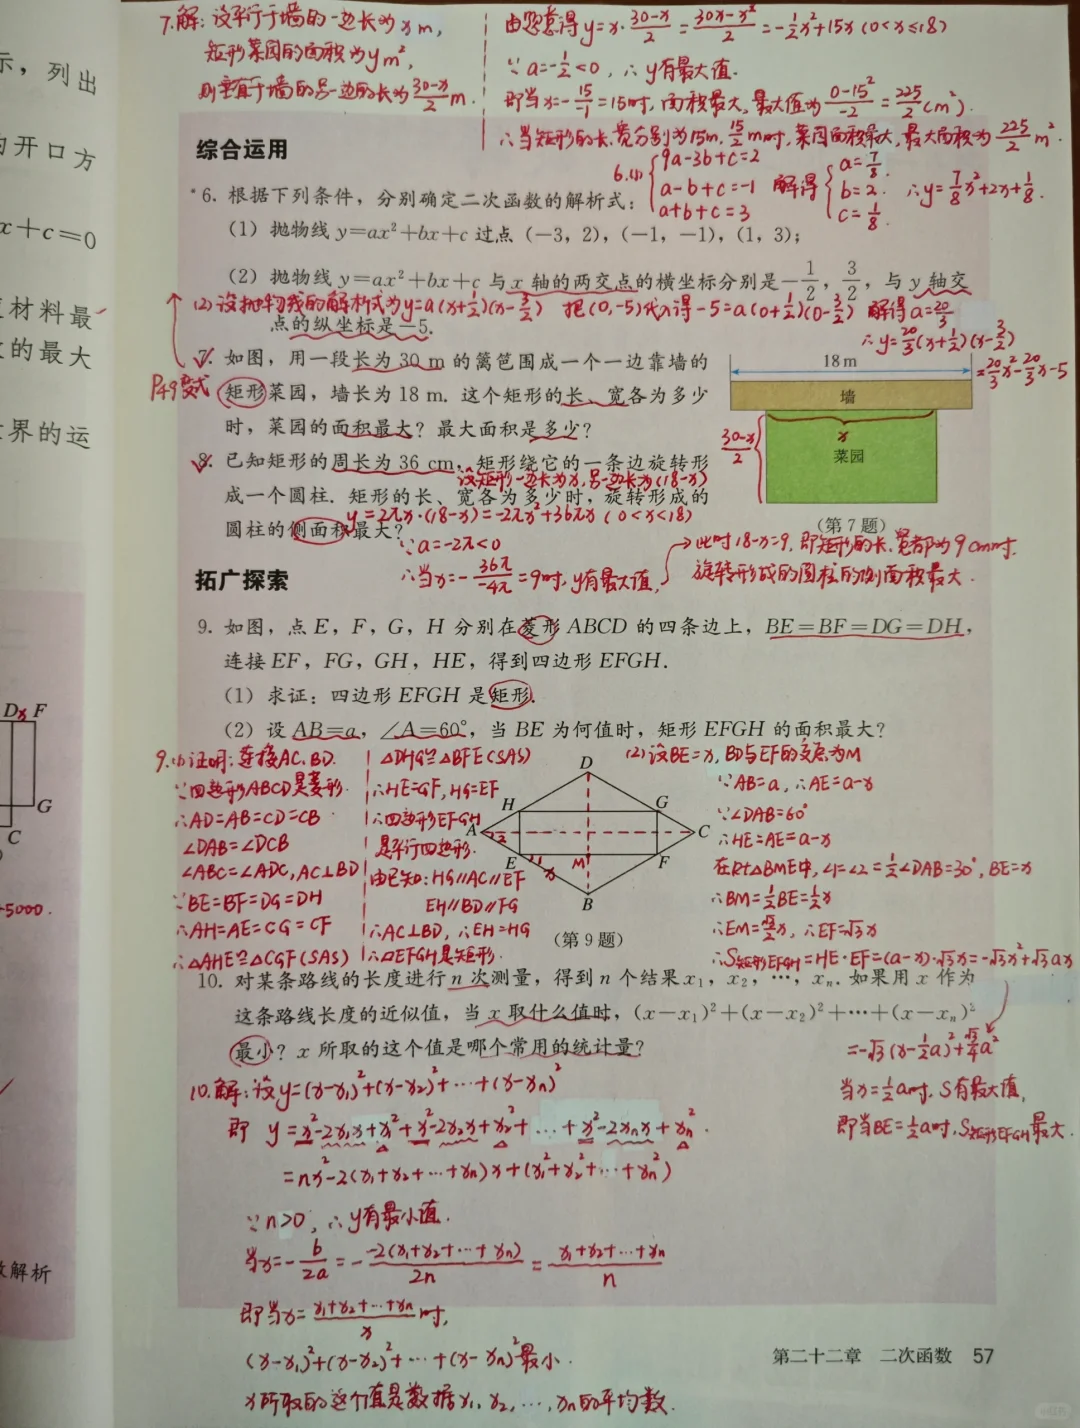 7.解:设平行于墙的一边长为xm,
矩形菜园的面积为ym²,
则垂直于墙的另一边的长为(30-x)/2 m.
由题意得y=x·(30-x)/2=(30x-x²)/2=-1/2x²+15x(0<x≤18)
∵a=-1/2<0,∴y有最大值.
即当x=-15/-1=15时,面积最大,最大值为(0-15²)/-2=225/2(m²).
∴当矩形的长、宽分别为15m,15/2m时,菜园面积最大,最大面积为225/2m².
示，列出
的开口方
x+c=0
材料最
的最大
世界的运
D x F
G
C
+5000.
解析
综合运用
6.(1) {9a-3b+c=2
a-b+c=-1
a+b+c=3
解得 {a=7/8
b=2
c=1/8.
∴y=7/8x²+2x+1/8.
6. 根据下列条件，分别确定二次函数的解析式：
(1) 抛物线 y=ax²+bx+c 过点 (-3, 2), (-1, -1), (1, 3);
(2) 抛物线 y=ax²+bx+c 与 x 轴的两交点的横坐标分别是 -1/2, 3/2, 与 y 轴交
(2)设抛物线的解析式为y=a(x+1/2)(x-3/2) 把(0,-5)代入得-5=a(0+1/2)(0-3/2) 解得a=20/3
点的纵坐标是-5.
∴y=20/3(x+1/2)(x-3/2)
=20/3x²-20/3x-5
P49变式
7. 如图，用一段长为 30 m 的篱笆围成一个一边靠墙的
矩形菜园，墙长为 18 m. 这个矩形的长、宽各为多少
时，菜园的面积最大？最大面积是多少？
18 m
墙
x
(30-x)/2
菜园
(第 7 题)
8. 已知矩形的周长为 36 cm, 矩形绕它的一条边旋转形
设矩形一边长为x,另一边长为(18-x)
成一个圆柱. 矩形的长、宽各为多少时，旋转形成的
y=2πx·(18-x)=-2πx²+36πx(0<x<18)
圆柱的侧面积最大？
∵a=-2π<0
∴当x=-36π/-4π=9时,y有最大值,
→此时18-x=9,即矩形的长、宽都为9cm时,
旋转形成的圆柱的侧面积最大.
拓广探索
9. 如图，点 E，F，G，H 分别在菱形 ABCD 的四条边上，BE=BF=DG=DH，
连接 EF，FG，GH，HE，得到四边形 EFGH.
(1) 求证：四边形 EFGH 是矩形.
(2) 设 AB=a，∠A=60°，当 BE 为何值时，矩形 EFGH 的面积最大？
9.(1)证明:连接AC、BD.
∵四边形ABCD是菱形.
∴AD=AB=CD=CB
∠DAB=∠DCB
∠ABC=∠ADC,AC⊥BD
∵BE=BF=DG=DH
∴AH=AE=CG=CF
∴△AHE≌△CGF(SAS)
△DHG≌△BFE(SAS)
∴HE=GF,HG=EF
∴四边形EFGH
是平行四边形.
由已知:HG∥AC∥EF
EH∥BD∥FG
∴AC⊥BD,∴EH⊥HG
∴▱EFGH是矩形.
D
H
G
A
2
C
E
1
x
M
F
B
(第 9 题)
(2)设BE=x,BD与EF的交点为M
∵AB=a,∴AE=a-x
∵∠DAB=60°
∴HE=AE=a-x
在Rt△BME中,∠1=∠2=1/2∠DAB=30°,BE=x
∴BM=1/2BE=1/2x
∴EM=√3/2x,∴EF=√3x
∴S矩形EFGH=HE·EF=(a-x)·√3x=-√3x²+√3ax
=-√3(x-1/2a)²+√3/4a²
当x=1/2a时,S有最大值,
即当BE=1/2a时,S矩形EFGH最大.
10. 对某条路线的长度进行 n 次测量，得到 n 个结果 x₁，x₂，…，xₙ. 如果用 x 作为
这条路线长度的近似值，当 x 取什么值时，(x-x₁)²+(x-x₂)²+…+(x-xₙ)²
最小？x 所取的这个值是哪个常用的统计量？
10.解:设y=(x-x₁)²+(x-x₂)²+…+(x-xₙ)²
即 y=x²-2x₁x+x₁²+x²-2x₂x+x₂²+…+x²-2xₙx+xₙ².
=nx²-2(x₁+x₂+…+xₙ)x+(x₁²+x₂²+…+xₙ²)
∵n>0,∴y有最小值.
当x=-b/2a=-(-2(x₁+x₂+…+xₙ))/2n=(x₁+x₂+…+xₙ)/n
即当x=(x₁+x₂+…+xₙ)/x时,
(x-x₁)²+(x-x₂)²+…+(x-xₙ)²最小.
x所取的这个值是数据x₁,x₂,…,xₙ的平均数.
第二十二章 二次函数 57